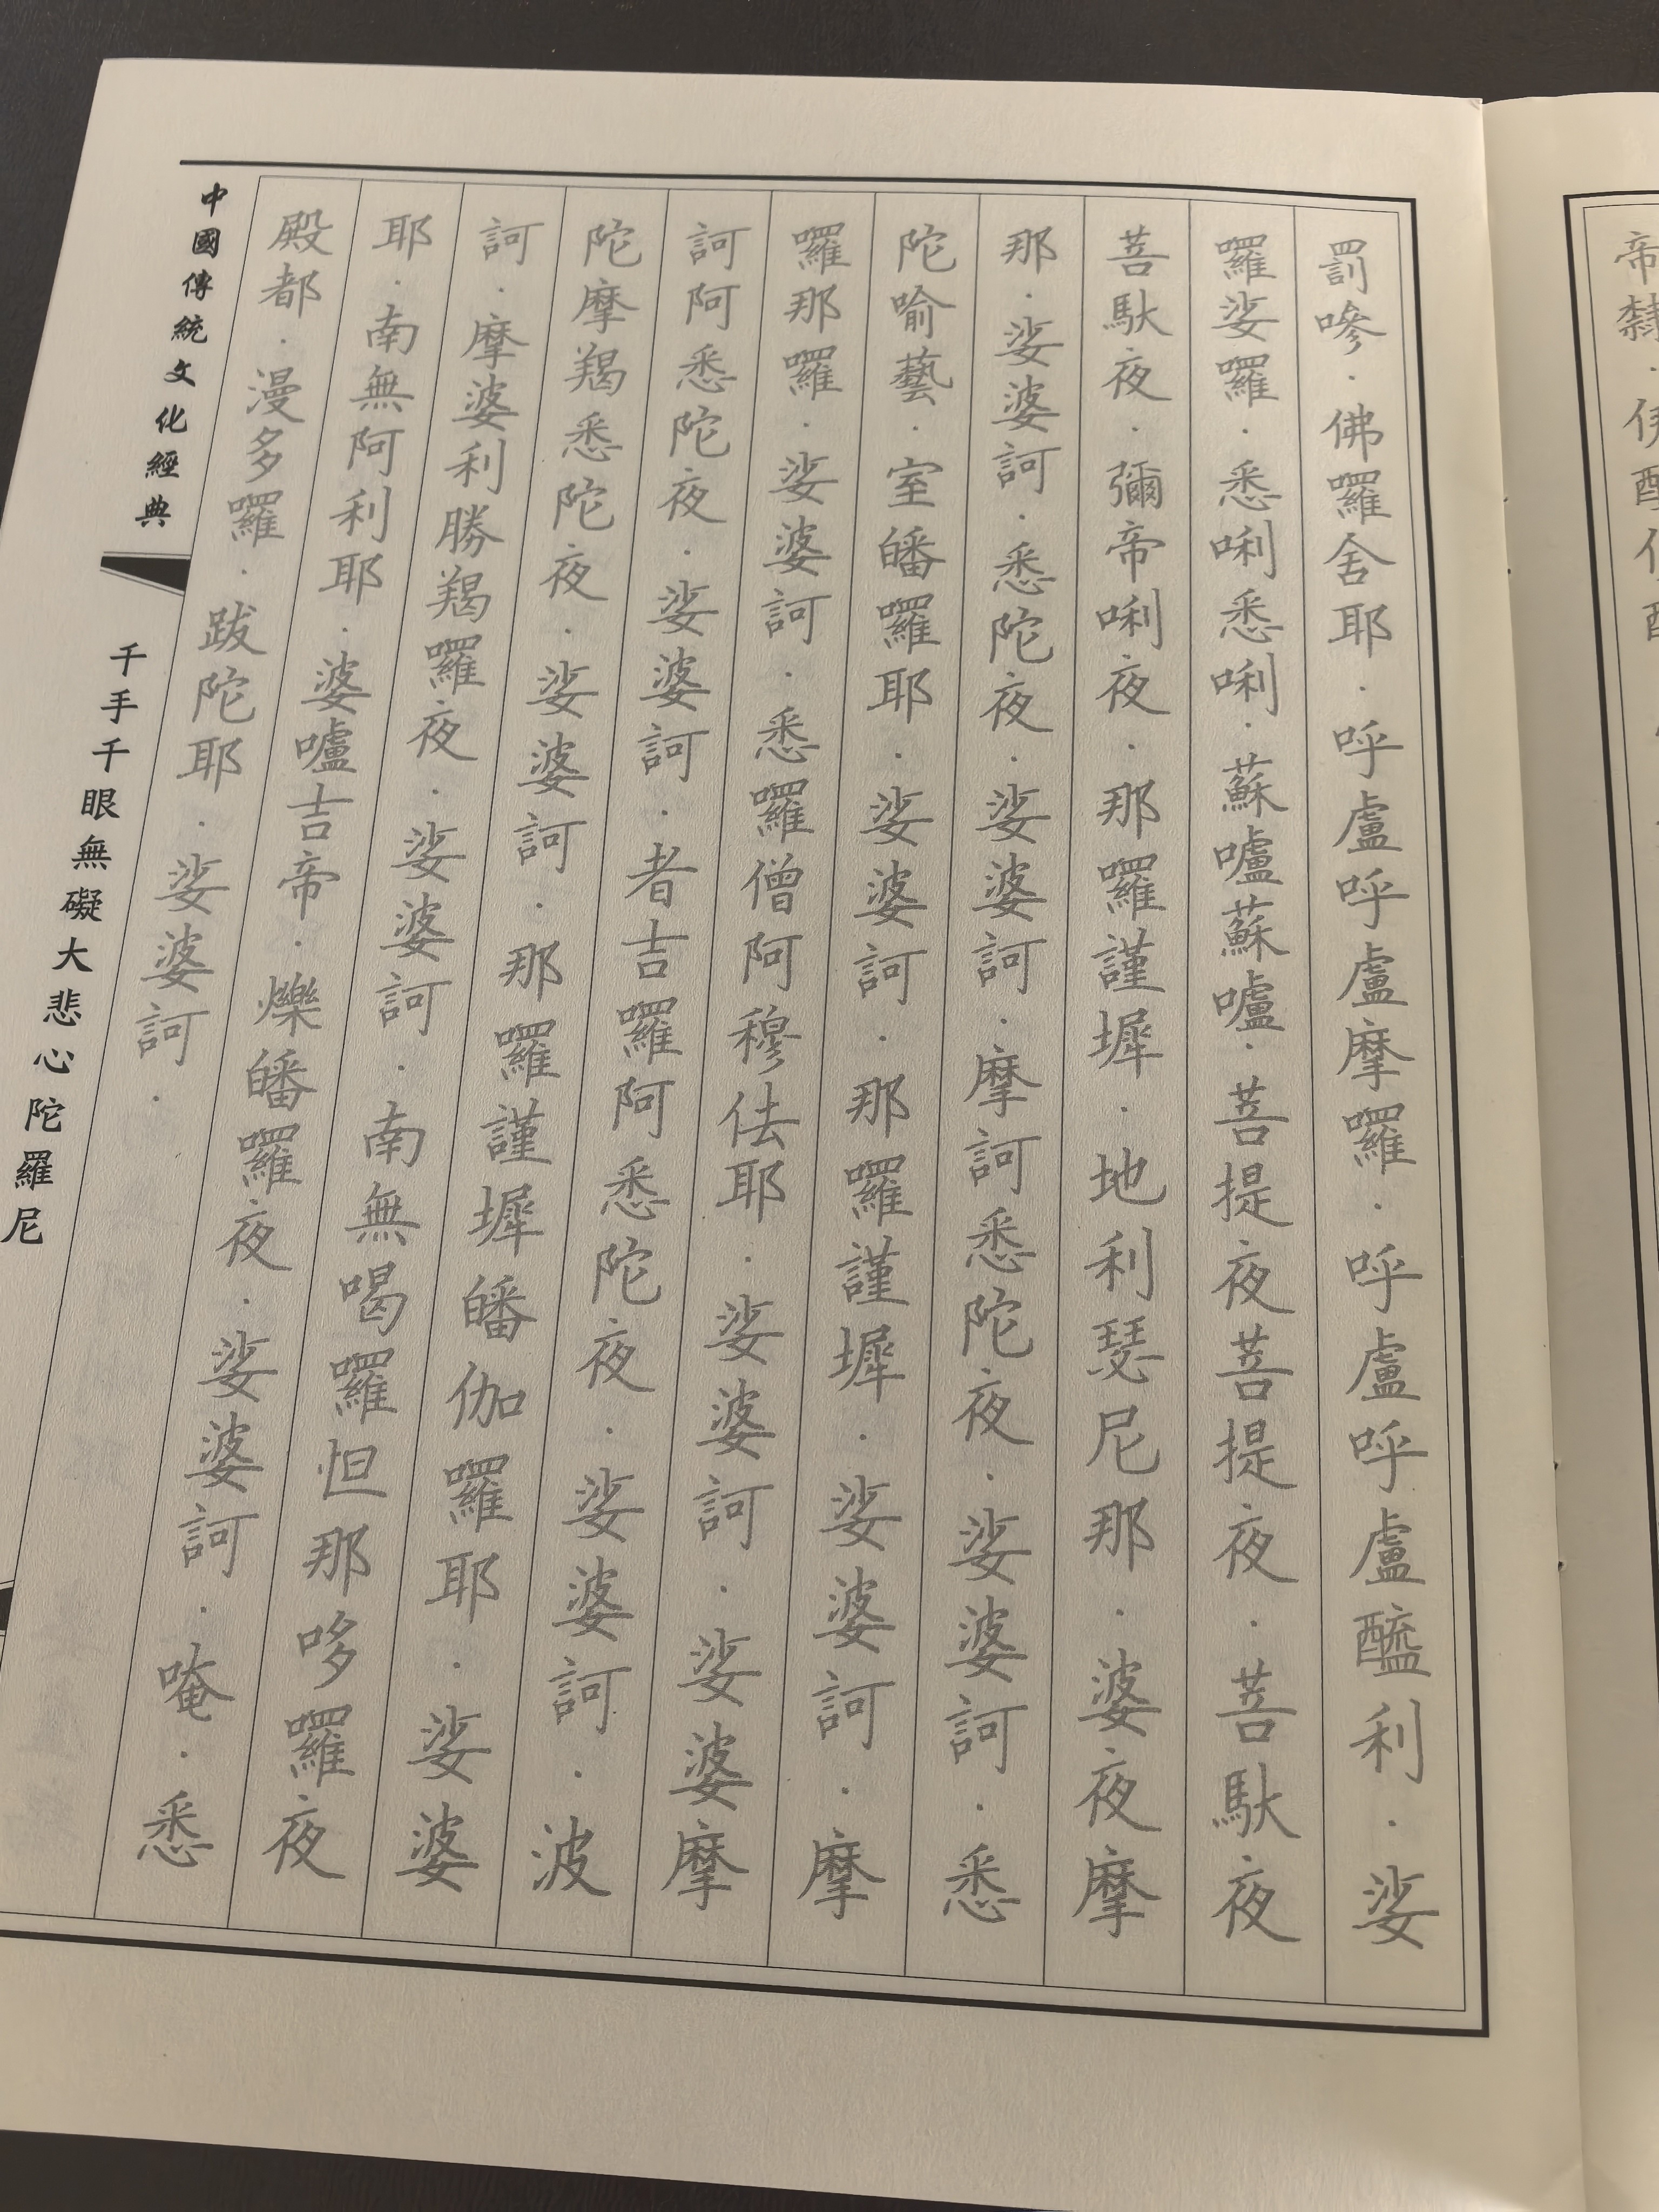 罰嘇．佛囉舍耶．呼盧呼盧摩囉．呼盧呼盧醯利．娑
囉娑囉．悉唎悉唎．蘇嚧蘇嚧．菩提夜菩提夜．菩馱夜
菩馱夜．彌帝唎夜．那囉謹墀．地利瑟尼那．婆夜摩
那．娑婆訶．悉陀夜．娑婆訶．摩訶悉陀夜．娑婆訶．悉
陀喻藝．室皤囉耶．娑婆訶．那囉謹墀．娑婆訶．摩
囉那囉．娑婆訶．悉囉僧阿穆佉耶．娑婆訶．娑婆摩
訶阿悉陀夜．娑婆訶．者吉囉阿悉陀夜．娑婆訶．波
陀摩羯悉陀夜．娑婆訶．那囉謹墀皤伽囉耶．娑婆
訶．摩婆利勝羯囉夜．娑婆訶．南無喝囉怛那哆囉夜
耶．南無阿利耶．婆嚧吉帝．爍皤囉夜．娑婆訶．唵．悉
殿都．漫多囉．跋陀耶．娑婆訶．
中國傳統文化經典
千手千眼無礙大悲心陀羅尼